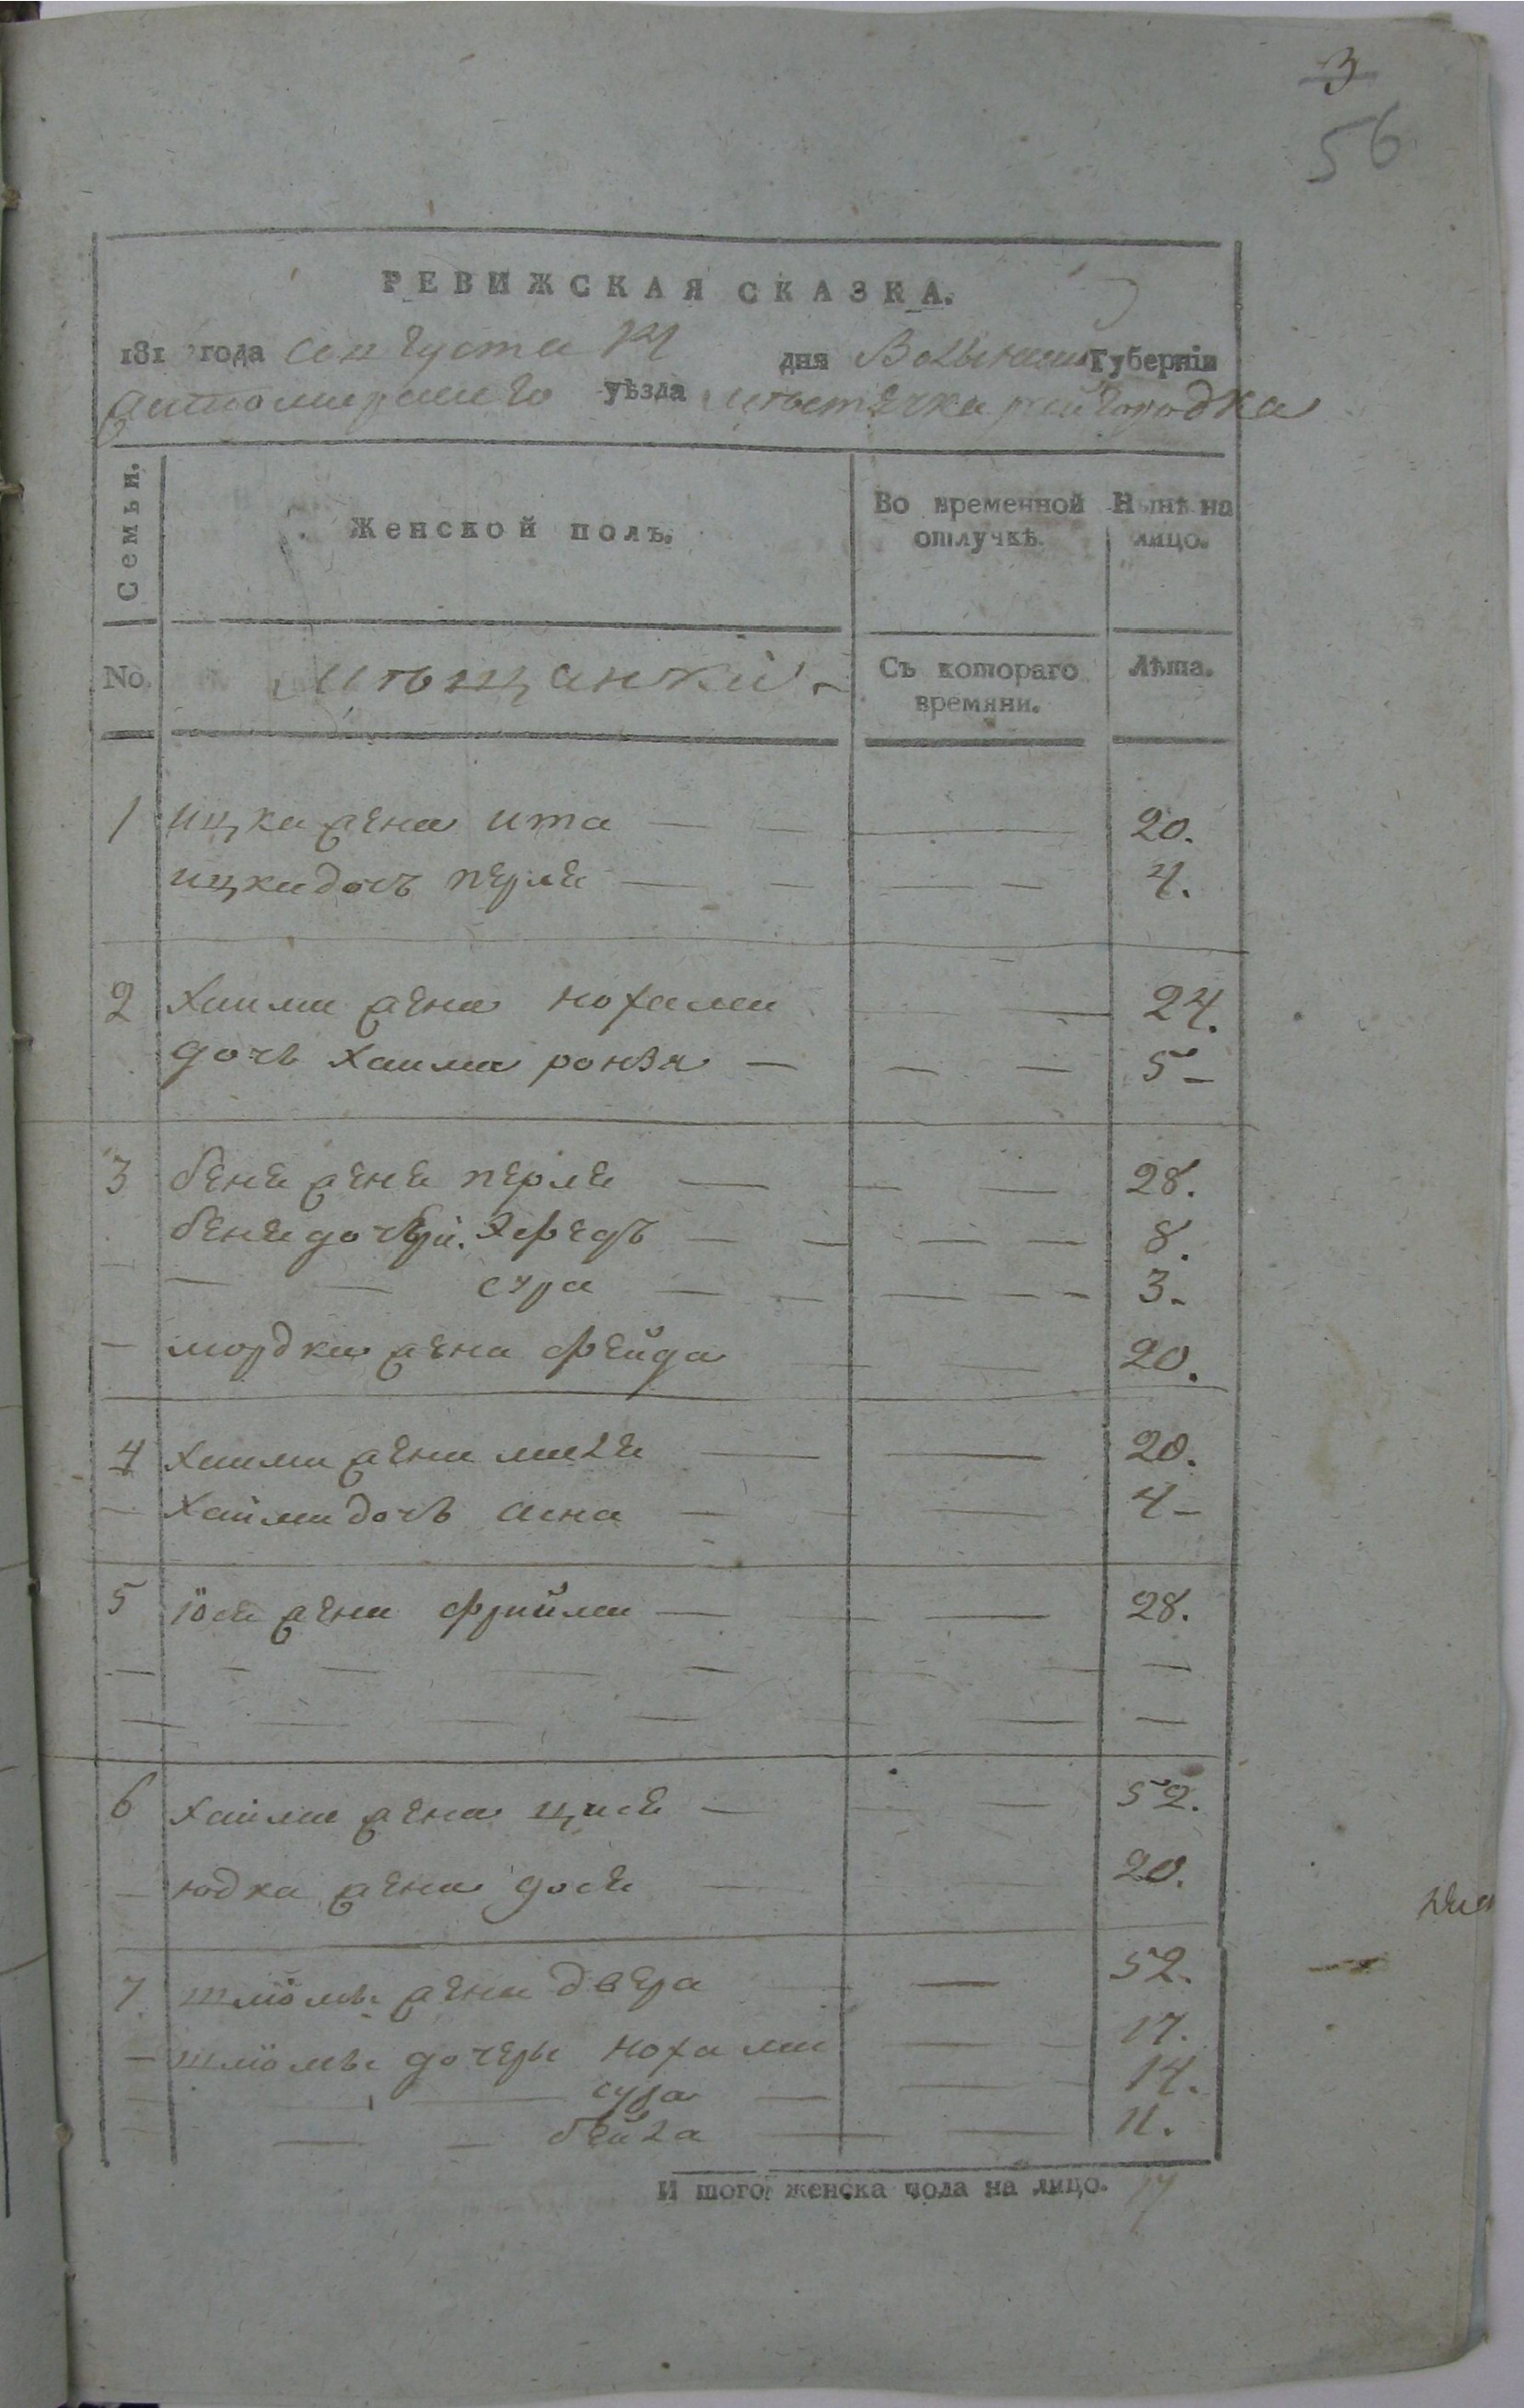 3
56
РЕВИЖСКАЯ СКАЗКА.
181 года августа дня Волынской Губерніи
житомирскаго уѣзда мѣстечка райгородка
Семьи. Женской полъ. Во временной отлучкѣ. Нынѣ на лицо.
No. мѣщанки Съ котораго времяни. Лѣта.
1 ицка жена ита — — — 20.
ицка дочь перле — — — — 4.
2 Хаима жена нохама — — 24.
дочь хаима ронзя — — — 5 -
3 бене жене перле — — — 28.
бене дочери. Хфередъ — — — — 8.
— — сура — — — — - 3.
— мордка жена фейда — — 20.
4 хаима жена — — 20.
- Хаима дочь асна — — — 4 -
5 іося жена фрийма — — — 28.
— - — — — — — —
— — — — — — — —
6 хаима жена цися — — — 52.
— юдка жена дося — — — 20.
7 шлiомы жена двера — — 52.
— шлiомы дочеры нохама — - 17.
— — сура — — - 14.
— - бейла — — 11.
И того женска пола на лицо. 17